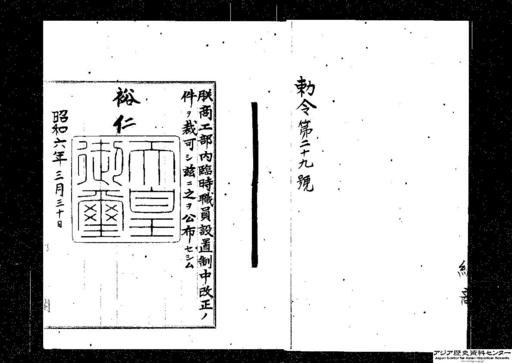 勅令第二十九號
朕商工部内臨時職員設置制中改正ノ
件ヲ裁可シ茲ニ之ヲ公布セシム
裕仁
天皇
御璽
昭和六年三月三十日
アジア歴史資料センター
Japan Center for Asian Historical Records